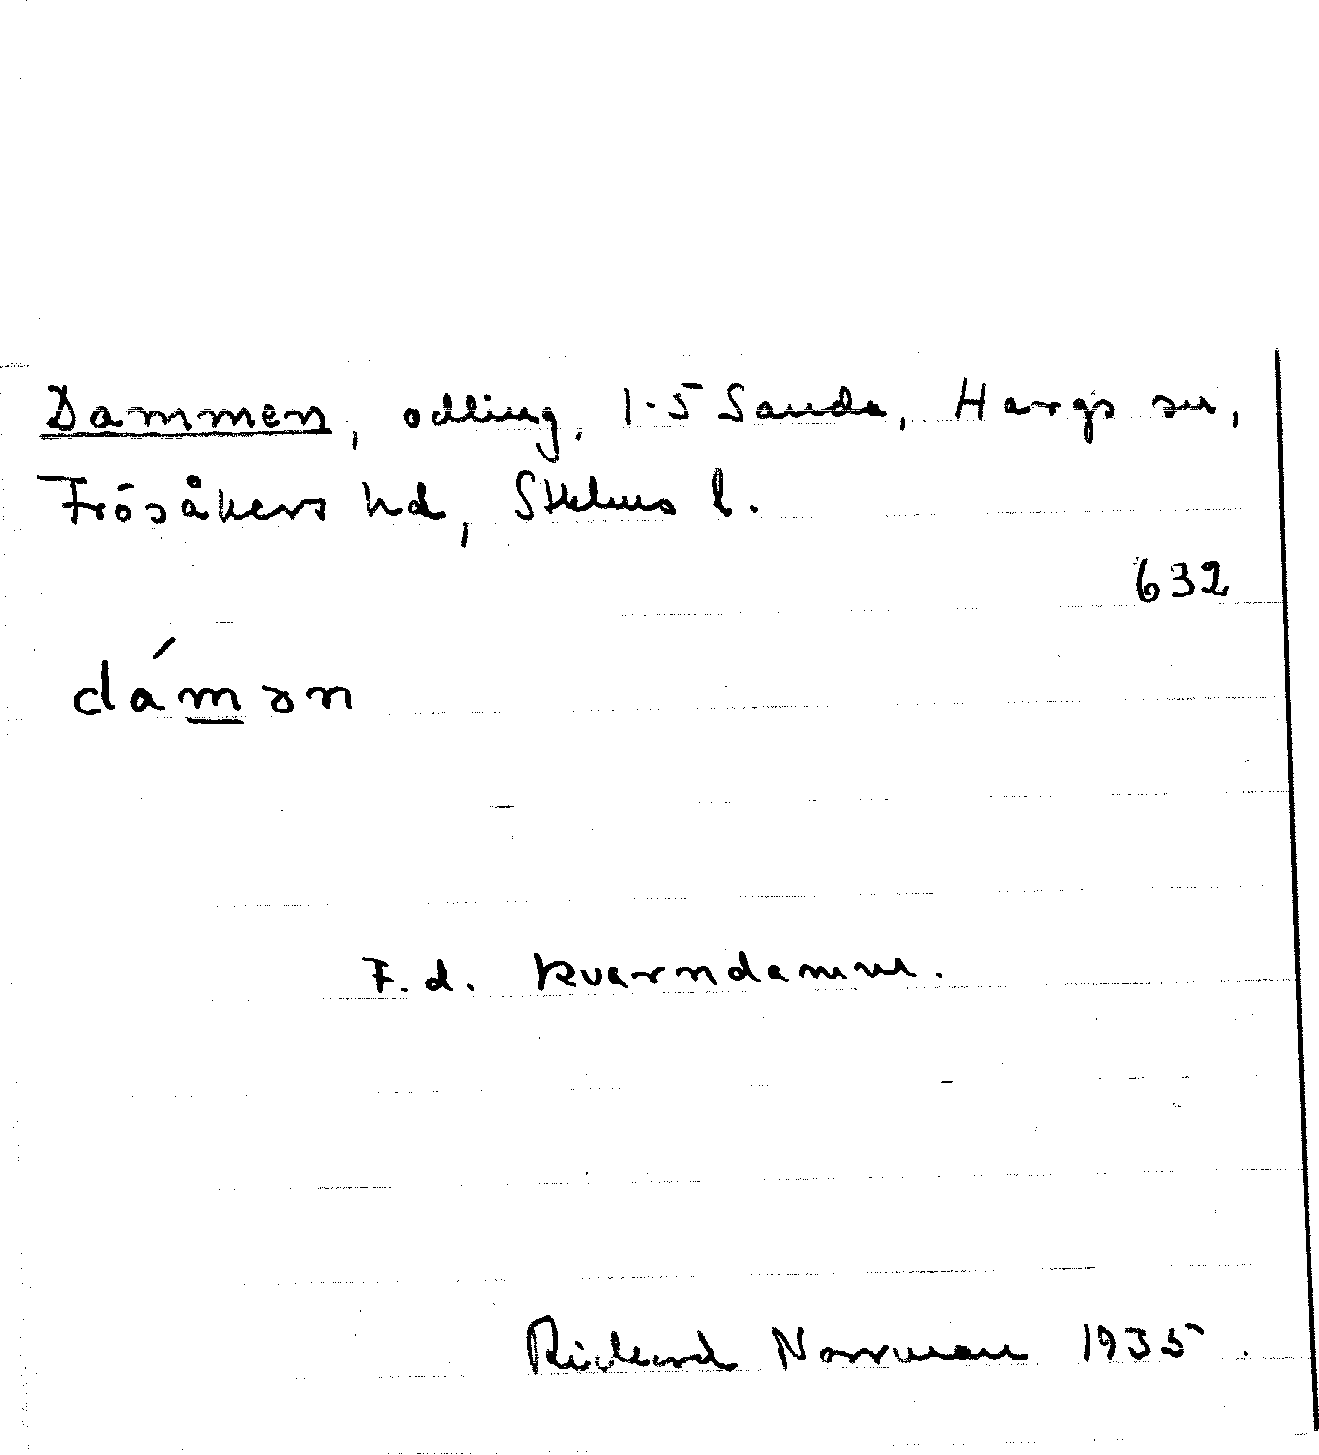 Dammen, odling, 1-5 Sanda, Hargs sn,
Frösåkers hd, Sthlms l.
632
dámən
F.d. kvarndamm.
Rickard Norrman 1935.